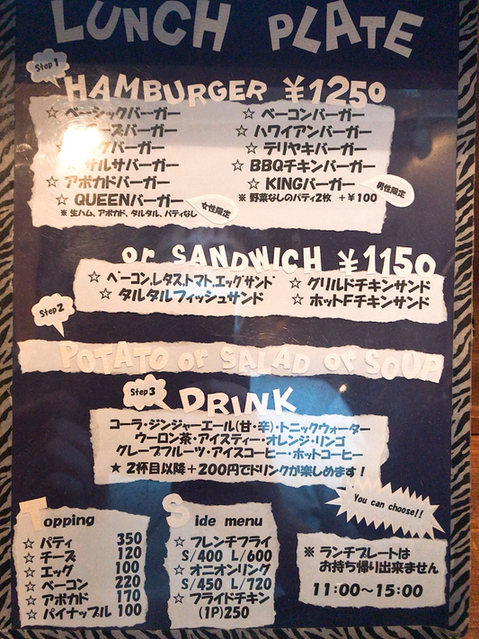 LUNCH PLATE
Step1
HAMBURGER ¥1250
☆ ベーシックバーガー
☆ ベーコンバーガー
ーズバーガー
☆ ハワイアンバーガー
グバーガー
☆ テリヤキバーガー
サルサバーガー
☆ BBQチキンバーガー
☆ アボカドバーガー
☆ KINGバーガー
男性限定
☆ QUEENバーガー
女性限定
※ 野菜なしのパティ2枚 +¥100
※ 生ハム、アボカド、タルタル、パティなし
or SANDWICH ¥1150
☆ ベーコン,レタス,トマト,エッグサンド
☆ グリルドチキンサンド
☆ タルタルフィッシュサンド
☆ ホットFチキンサンド
Step2
POTATO or SALAD or SOUP
Step3
DRINK
コーラ・ジンジャーエール(甘・辛)・トニックウォーター
ウーロン茶・アイスティー・オレンジ・リンゴ
グレープフルーツ・アイスコーヒー・ホットコーヒー
★ 2杯目以降+200円でドリンクが楽しめます!
You can choose!!
Topping
☆ パティ 350
☆ チーズ 120
☆ エッグ 100
☆ ベーコン 220
☆ アボカド 170
☆ パイナップル 100
Side menu
☆ フレンチフライ
S/400 L/600
☆ オニオンリング
S/450 L/720
☆ フライドチキン
(1P)250
※ ランチプレートは
お持ち帰り出来ません
11:00~15:00